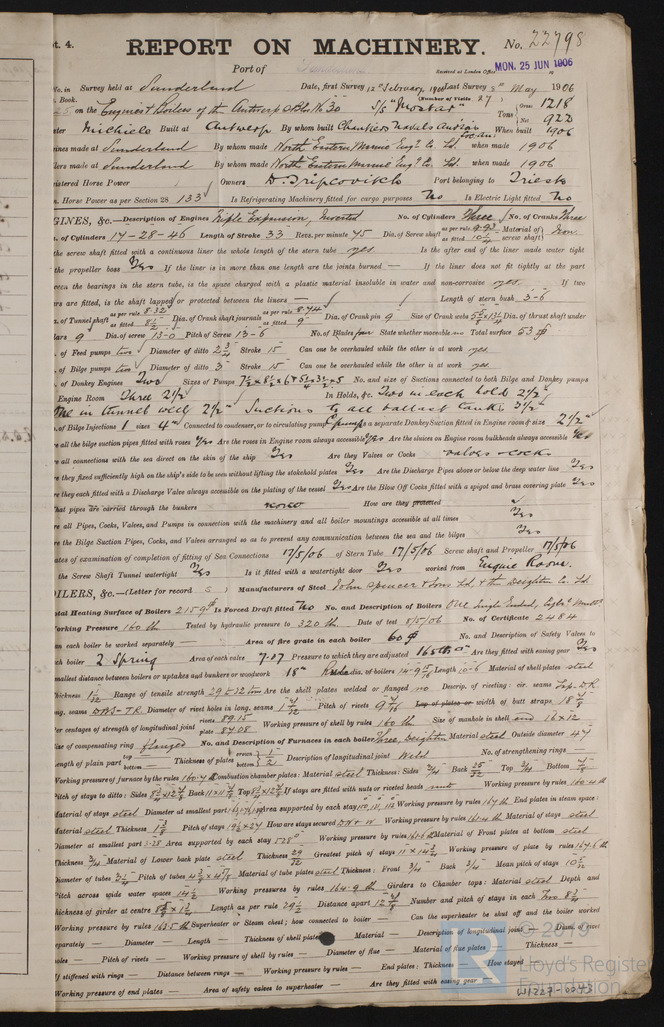 pt. 4. REPORT ON MACHINERY. No. 22798
Port of Sunderland Received at London Office MON. 25 JUN 1906
No. in Survey held at Sunderland Date, first Survey 12th February, 1906 Last Survey 8th May 1906
Book. (Number of Visits 27)
on the Engines & Boilers of the Antwerp S/S "Mostar" Tons Gross 1218 Net 922
Master Michich Built at Antwerp By whom built Chantiers Navals When built 1906
Engines made at Sunderland By whom made North Eastern Marine Engg Co. Ld. when made 1906
Boilers made at Sunderland By whom made North Eastern Marine Engg Co. Ld. when made 1906
Registered Horse Power Owners D. Tripcovich Port belonging to Trieste
Nom. Horse Power as per Section 28 133 Is Refrigerating Machinery fitted for cargo purposes No Is Electric Light fitted No
ENGINES, &c.—Description of Engines Triple Expansion, Inverted No. of Cylinders Three No. of Cranks Three
of Cylinders 17-28-46 Length of Stroke 33 Revs. per minute 75 Dia. of Screw shaft as per rule 9.93 as fitted 10 1/4 Material of screw shaft Iron
the screw shaft fitted with a continuous liner the whole length of the stern tube yes Is the after end of the liner made water tight
the propeller boss Yes If the liner is in more than one length are the joints burned — If the liner does not fit tightly at the part
between the bearings in the stern tube, is the space charged with a plastic material insoluble in water and non-corrosive yes If two
liners are fitted, is the shaft lapped or protected between the liners — Length of stern bush 3-6
of Tunnel shaft as per rule 8.32 as fitted 8 1/2 Dia. of Crank shaft journals as per rule 8.74 as fitted 9 Dia. of Crank pin 9 Size of Crank webs Dia. of thrust shaft under
collars 9 Dia. of screw 13-0 Pitch of Screw 13-6 No. of Blades four State whether moveable no Total surface 53
of Feed pumps two Diameter of ditto 2 3/4 Stroke 15 Can one be overhauled while the other is at work yes
of Bilge pumps two Diameter of ditto 3 Stroke 15 Can one be overhauled while the other is at work yes
of Donkey Engines Two Sizes of Pumps No. and size of Suctions connected to both Bilge and Donkey pumps
Engine Room Three 2 1/2" In Holds, &c. Two in each hold 2 1/2"
One in tunnel well 2 1/2" Suctions to all ballast tanks 3 1/2"
of Bilge Injections 1 sizes 4" Connected to condenser, or to circulating pump pump Is a separate Donkey Suction fitted in Engine room & size 2 1/2"
Are all the bilge suction pipes fitted with roses Yes Are the roses in Engine room always accessible Yes Are the sluices on Engine room bulkheads always accessible Yes
Are all connections with the sea direct on the skin of the ship Yes Are they Valves or Cocks valves & cocks
Are they fixed sufficiently high on the ship's side to be seen without lifting the stokehold plates Yes Are the Discharge Pipes above or below the deep water line Yes
Are they each fitted with a Discharge Valve always accessible on the plating of the vessel Yes Are the Blow Off Cocks fitted with a spigot and brass covering plate Yes
What pipes are carried through the bunkers none How are they protected
Are all Pipes, Cocks, Valves, and Pumps in connection with the machinery and all boiler mountings accessible at all times Yes
Are the Bilge Suction Pipes, Cocks, and Valves arranged so as to prevent any communication between the sea and the bilges Yes
Dates of examination of completion of fitting of Sea Connections 17/5/06 of Stern Tube 17/5/06 Screw shaft and Propeller 17/5/06
Is the Screw Shaft Tunnel watertight Yes Is it fitted with a watertight door Yes worked from Engine Room.
BOILERS, &c.—(Letter for record S) Manufacturers of Steel John Spencer & Sons Ld & the Deighton Co Ld
Total Heating Surface of Boilers 2159 Is Forced Draft fitted No No. and Description of Boilers One Single Ended,
Working Pressure 160 lb Tested by hydraulic pressure to 320 lb Date of test 8/5/06 No. of Certificate 2484
Can each boiler be worked separately — Area of fire grate in each boiler 60 No. and Description of Safety Valves to
each boiler 2 Spring Area of each valve 7.07 Pressure to which they are adjusted 165 lb Are they fitted with easing gear Yes
Smallest distance between boilers or uptakes and bunkers or woodwork 18" dia. of boilers Length 10-6 Material of shell plates steel
Thickness Range of tensile strength 29 & 32 tons Are the shell plates welded or flanged no Descrip. of riveting: cir. seams Lap. D.R
long. seams D.B.S-T.R. Diameter of rivet holes in long. seams Pitch of rivets Lap of plates or width of butt straps
Per centages of strength of longitudinal joint rivets 89.15 plate 87.08 Working pressure of shell by rules 160 lb Size of manhole in shell end 16 x 12
Size of compensating ring flanged No. and Description of Furnaces in each boiler Three, Deighton Material steel Outside diameter 47
Length of plain part top bottom Thickness of plates crown bottom Description of longitudinal joint Weld No. of strengthening rings —
Working pressure of furnace by the rules 160.7 Combustion chamber plates: Material steel Thickness: Sides 3/4 Back 25/32 Top 3/4 Bottom
Pitch of stays to ditto: Sides Back Top If stays are fitted with nuts or riveted heads nuts Working pressure by rules 160.4 lb
Material of stays steel Diameter at smallest part Area supported by each stay Working pressure by rules 167 lb End plates in steam space:
Material steel Thickness Pitch of stays 19 1/2 x 27 How are stays secured D.N & W Working pressure by rules 161.4 lb Material of stays steel
Diameter at smallest part Area supported by each stay 528 Working pressure by rules 161.6 lb Material of Front plates at bottom steel
Thickness 3/4 Material of Lower back plate steel Thickness 29/32 Greatest pitch of stays Working pressure of plate by rules 167.6 lb
Diameter of tubes 3 1/2 Pitch of tubes Material of tube plates steel Thickness: Front 3/4 Back 3/4 Mean pitch of stays
Pitch across wide water spaces 14 1/2 Working pressures by rules 164.9 lb Girders to Chamber tops: Material steel Depth and
thickness of girder at centre Length as per rule 29 1/2 Distance apart Number and pitch of stays in each Two 8 3/4
Working pressure by rules 163.5 lb Superheater or Steam chest; how connected to boiler — Can the superheater be shut off and the boiler worked
separately — Diameter — Length — Thickness of shell plates Material — Description of longitudinal joint — Diam. of rivet
holes — Pitch of rivets — Working pressure of shell by rules — Diameter of flue — Material of flue plates Thickness —
If stiffened with rings — Distance between rings — Working pressure by rules — End plates: Thickness How stayed
Working pressure of end plates — Area of safety valves to superheater — Are they fitted with easing gear
© 2019
Lloyd's Register
Foundation
W1227-0043